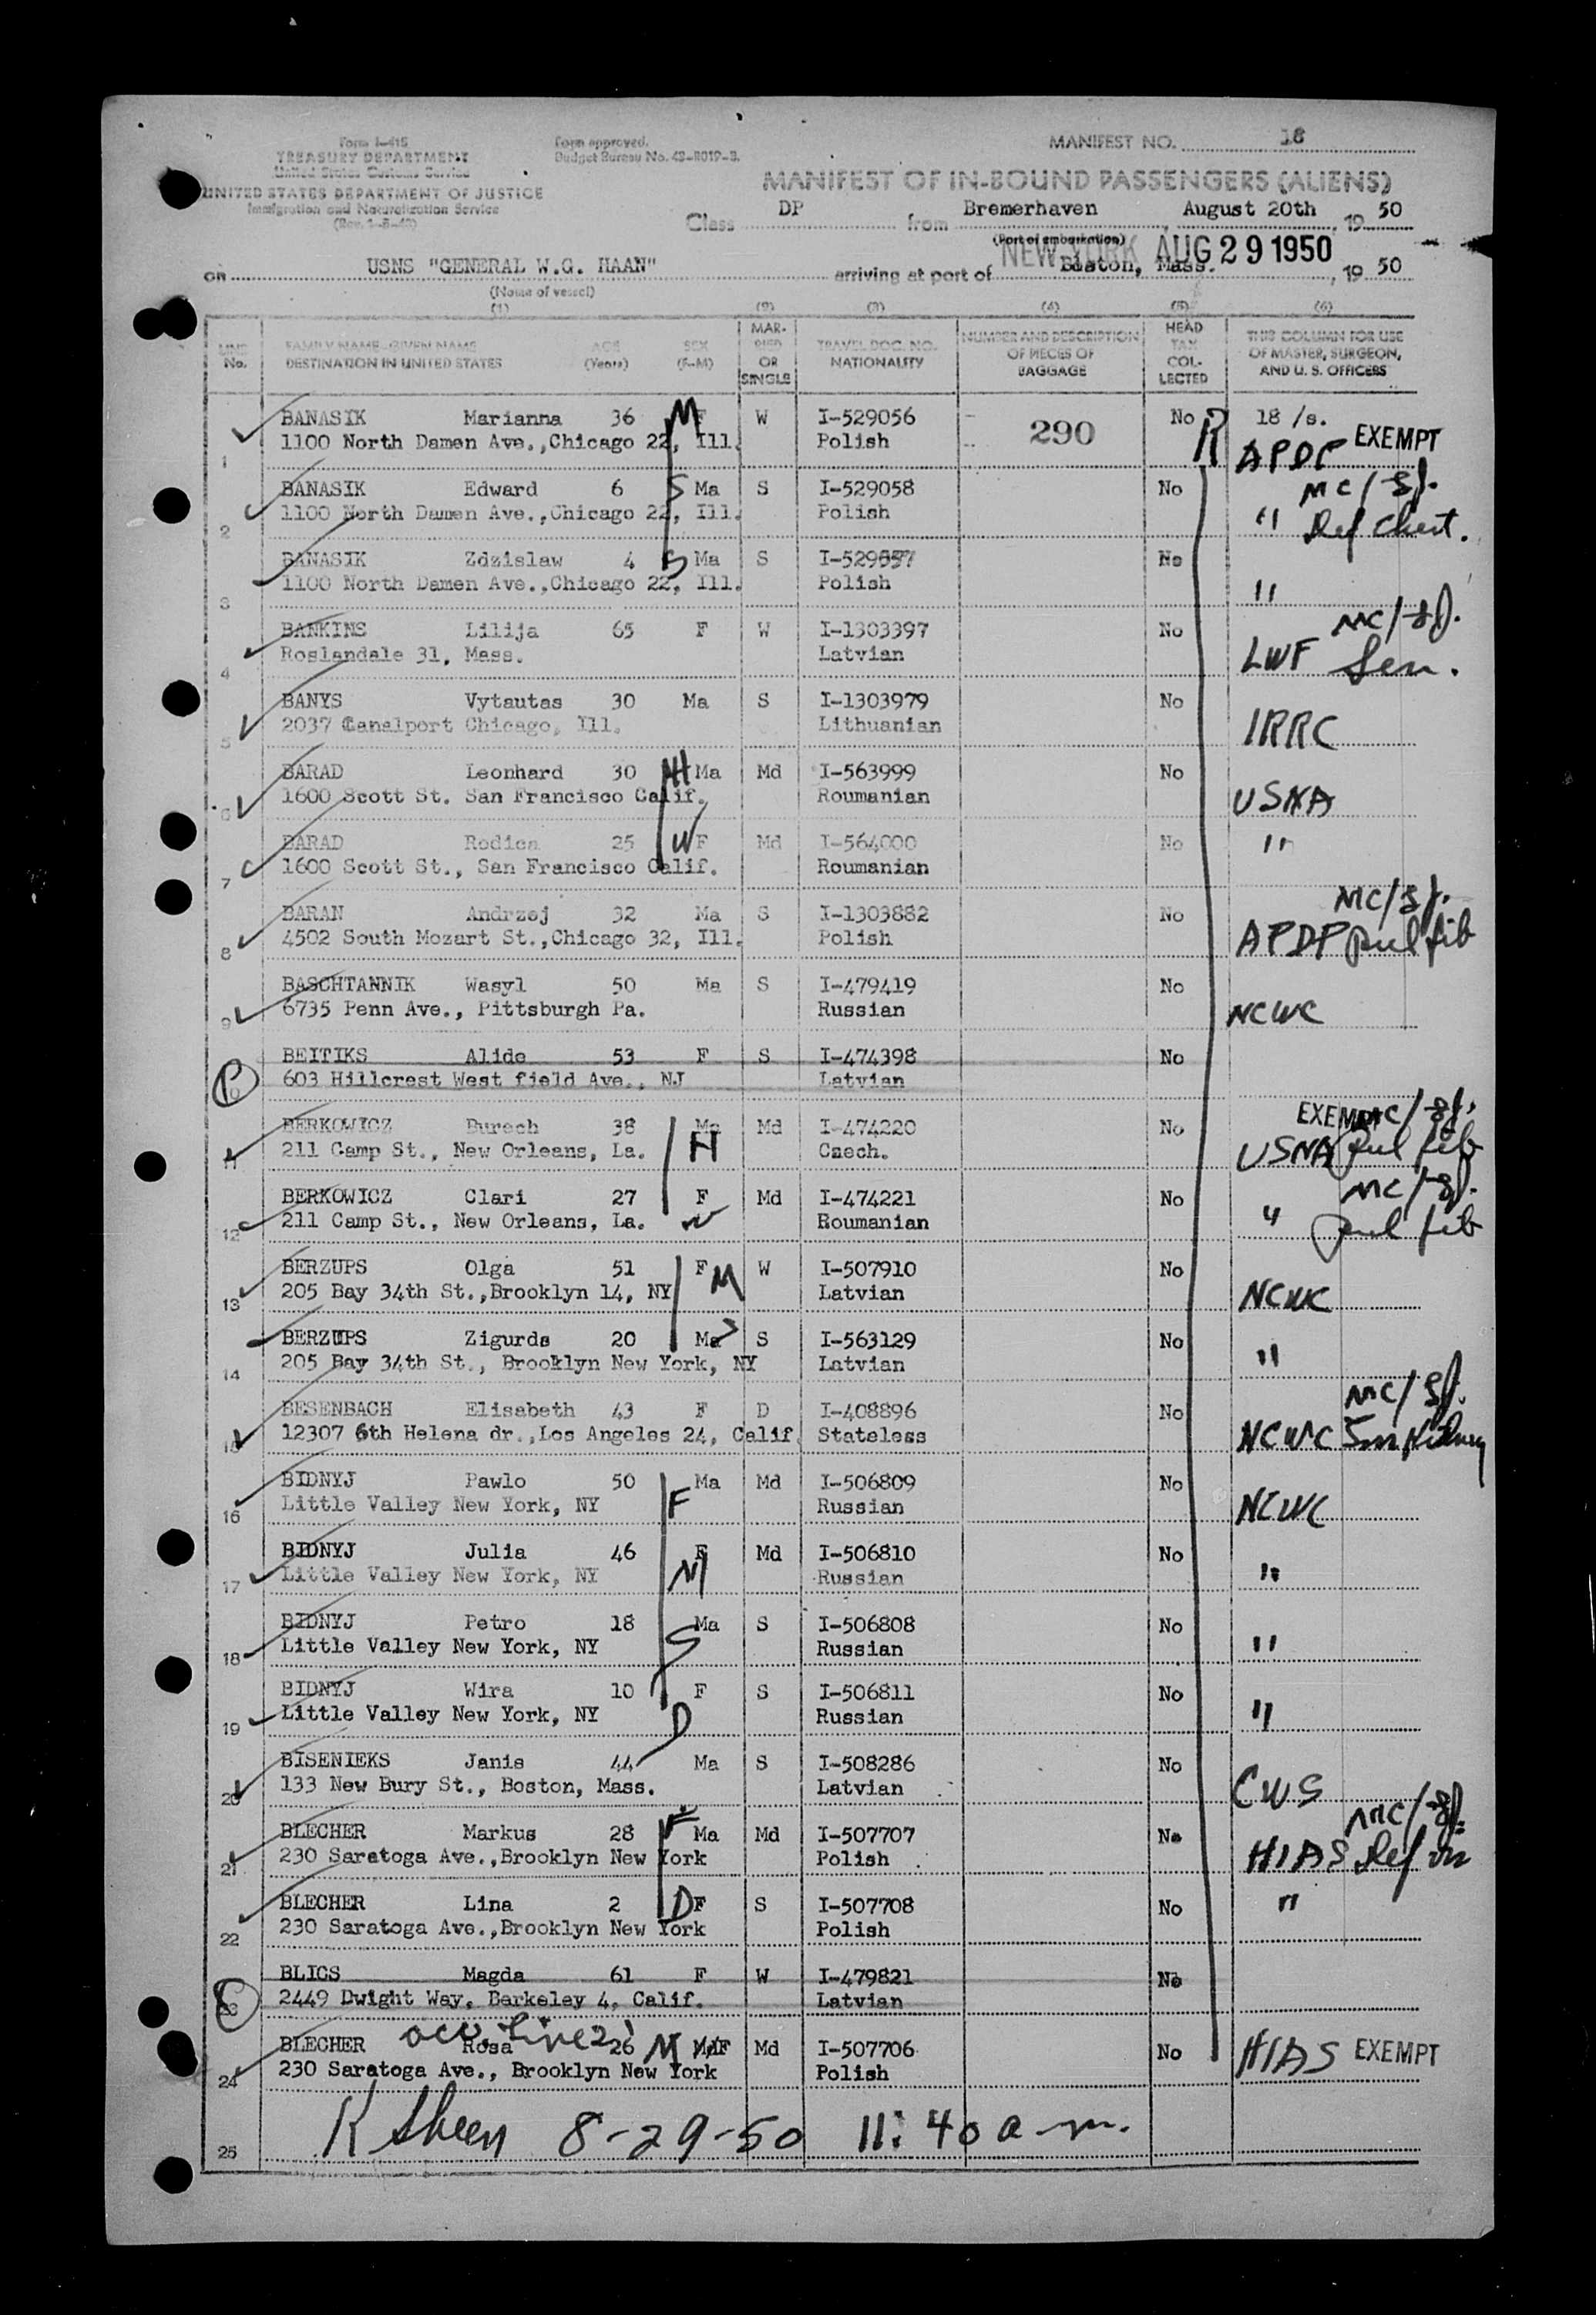 Form I-415
TREASURY DEPARTMENT
United States Customs Service
UNITED STATES DEPARTMENT OF JUSTICE
Immigration and Naturalization Service
Form approved.
Budget Bureau No. 43-R019-3.
MANIFEST NO. 18
MANIFEST OF IN-BOUND PASSENGERS (ALIENS)
Class DP from Bremerhaven, August 20th, 19 50
(Port of embarkation)
on USNS "GENERAL W.G. HAAN" arriving at port of Boston, Mass. , 19 50
NEW YORK AUG 29 1950
(Name of vessel)
(1) (2) (3) (4) (5) (6)
LINE No. FAMILY NAME-GIVEN NAME DESTINATION IN UNITED STATES AGE (Years) SEX (F-M) MARRIED OR SINGLE TRAVEL DOC. NO. NATIONALITY NUMBER AND DESCRIPTION OF PIECES OF BAGGAGE HEAD TAX COLLECTED THIS COLUMN FOR USE OF MASTER, SURGEON, AND U. S. OFFICERS
1 BANASIK Marianna 36 M F W I-529056 290 No 18 /s.
1100 North Damen Ave.,Chicago 22, Ill. Polish APDP EXEMPT
2 BANASIK Edward 6 S Ma S I-529058 No MC/
1100 North Damen Ave.,Chicago 22, Ill. Polish " Def Chest.
3 BANASIK Zdzislaw 4 S Ma S I-529057 No
1100 North Damen Ave.,Chicago 22, Ill. Polish "
4 BANKINS Lilija 65 F W I-1303397 No MC/
Roslandale 31, Mass. Latvian LWF Sen.
5 BANYS Vytautas 30 Ma S I-1303979 No
2037 Canalport Chicago, Ill. Lithuanian IRRC
6 BARAD Leonhard 30 H Ma Md I-563999 No
1600 Scott St. San Francisco Calif. Roumanian USNA
7 BARAD Rodica 25 W F Md I-564000 No "
1600 Scott St., San Francisco Calif. Roumanian
8 BARAN Andrzej 32 Ma S I-1303882 No MC/
4502 South Mozart St.,Chicago 32, Ill. Polish APDP pul fib
9 BASCHTANNIK Wasyl 50 Ma S I-479419 No
6735 Penn Ave., Pittsburgh Pa. Russian NCWC
10 BEITIKS Alide 53 F S I-474398 No
603 Hillcrest West field Ave., NJ Latvian
11 BERKOWICZ Burech 38 Ma Md I-474220 No EXEMPT MC/
211 Camp St., New Orleans, La. H Czech. USNA pul fib
12 BERKOWICZ Clari 27 F Md I-474221 No MC/
211 Camp St., New Orleans, La. W Roumanian " pul fib
13 BERZUPS Olga 51 F M W I-507910 No
205 Bay 34th St.,Brooklyn 14, NY Latvian NCWC
14 BERZUPS Zigurds 20 Ma S S I-563129 No
205 Bay 34th St., Brooklyn New York, NY Latvian "
15 BESENBACH Elisabeth 43 F D I-408896 No MC/
12307 6th Helena dr.,Los Angeles 24, Calif. Stateless NCWC Kidney
16 BIDNYJ Pawlo 50 Ma Md I-506809 No
Little Valley New York, NY F Russian NCWC
17 BIDNYJ Julia 46 F Md I-506810 No
Little Valley New York, NY M Russian "
18 BIDNYJ Petro 18 Ma S I-506808 No
Little Valley New York, NY S Russian "
19 BIDNYJ Wira 10 F S I-506811 No
Little Valley New York, NY D Russian "
20 BISENIEKS Janis 44 Ma S I-508286 No
133 New Bury St., Boston, Mass. Latvian CWS
21 BLECHER Markus 28 F Ma Md I-507707 No MC/
230 Saratoga Ave.,Brooklyn New York Polish HIAS Def
22 BLECHER Lina 2 D F S I-507708 No "
230 Saratoga Ave.,Brooklyn New York Polish
23 BLICS Magda 61 F W I-479821 No
2449 Dwight Way, Berkeley 4, Calif. Latvian
acc. Line 21
24 BLECHER Rosa 26 M F Md I-507706 No HIAS EXEMPT
230 Saratoga Ave., Brooklyn New York Polish
25 K Sheen 8-29-50 11:40 a-m.